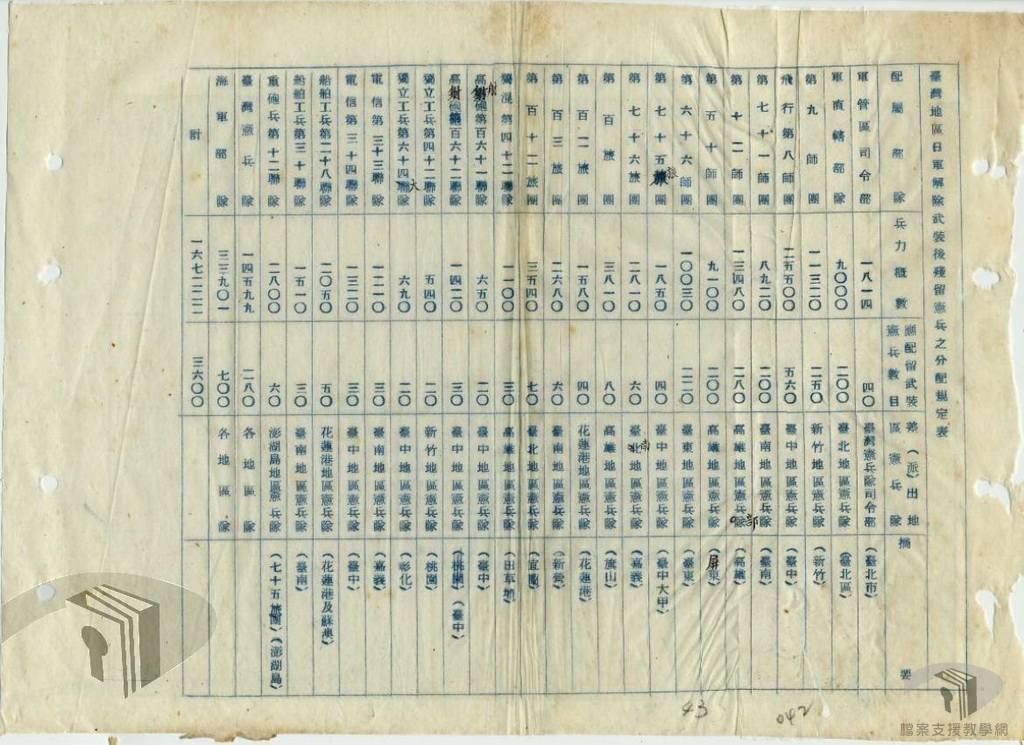 臺灣地區日軍解除武裝後殘留憲兵之分配規定表
配屬部隊 兵力概數 應配留武裝憲兵數目 落(派)出地區憲兵隊 摘要
軍管區司令部 一八一四 四〇 臺灣憲兵隊司令部 (臺北市)
軍直轄部隊 九〇〇〇 二〇〇 臺北地區憲兵隊 (臺北區)
第九師團 一一三二〇 二五〇 新竹地區憲兵隊 (新竹)
飛行第八師團 二五五〇〇 五六〇 臺中地區憲兵隊 (臺中)
第七十一師團 八九二〇 二〇〇 臺南地區憲兵隊 (臺南)
第十二師團 一三四八〇 二八〇 高雄地區憲兵隊部 (高雄)
第五十師團 九一〇〇 二〇〇 高雄地區憲兵隊 (屏東)
第六十六師團 一〇〇三〇 二二〇 臺東地區憲兵隊 (臺東)
第七十五旅團 一八五〇 四〇 臺中地區憲兵隊 (臺中大甲)
第七十六旅團 二八一〇 六〇 臺南地區憲兵隊 (嘉義)
第百旅團 三八一〇 八〇 高雄地區憲兵隊 (旗山)
第百二旅團 一五八〇 四〇 花蓮港地區憲兵隊 (花蓮港)
第百三旅團 二六八〇 六〇 臺南地區憲兵隊 (新營)
第百十二旅團 三五四〇 七〇 臺北地區憲兵隊 (宜蘭)
獨混第四十二聯隊 一一〇〇 三〇 高雄地區憲兵隊 (田草埔)
高射砲第百六十一聯隊 六五〇 二〇 臺中地區憲兵隊 (臺中)
高射砲第百六十二聯隊 一四二〇 三〇 臺中地區憲兵隊 (桃園)(臺中)
獨立工兵第四十二聯隊 五四〇 二〇 新竹地區憲兵隊 (桃園)
獨立工兵第六十四大隊 六九〇 二〇 臺中地區憲兵隊 (彰化)
電信第三十三聯隊 一二一〇 三〇 臺南地區憲兵隊 (嘉義)
電信第三十四聯隊 一三二〇 三〇 臺中地區憲兵隊 (臺中)
船舶工兵第二十八聯隊 二〇五〇 五〇 花蓮港地區憲兵隊 (花蓮港及蘇澳)
船舶工兵第三十聯隊 一五一〇 三〇 臺南地區憲兵隊 (臺南)
重砲兵第十二聯隊 二八〇〇 六〇 澎湖島地區憲兵隊 (七十五旅團)(澎湖島)
臺灣憲兵隊 一四五九九 二八〇 各地區隊
海軍部隊 三三九〇一 七〇〇 各地區隊
計 一六七二二二 三六〇〇
43
042
檔案支援教學網